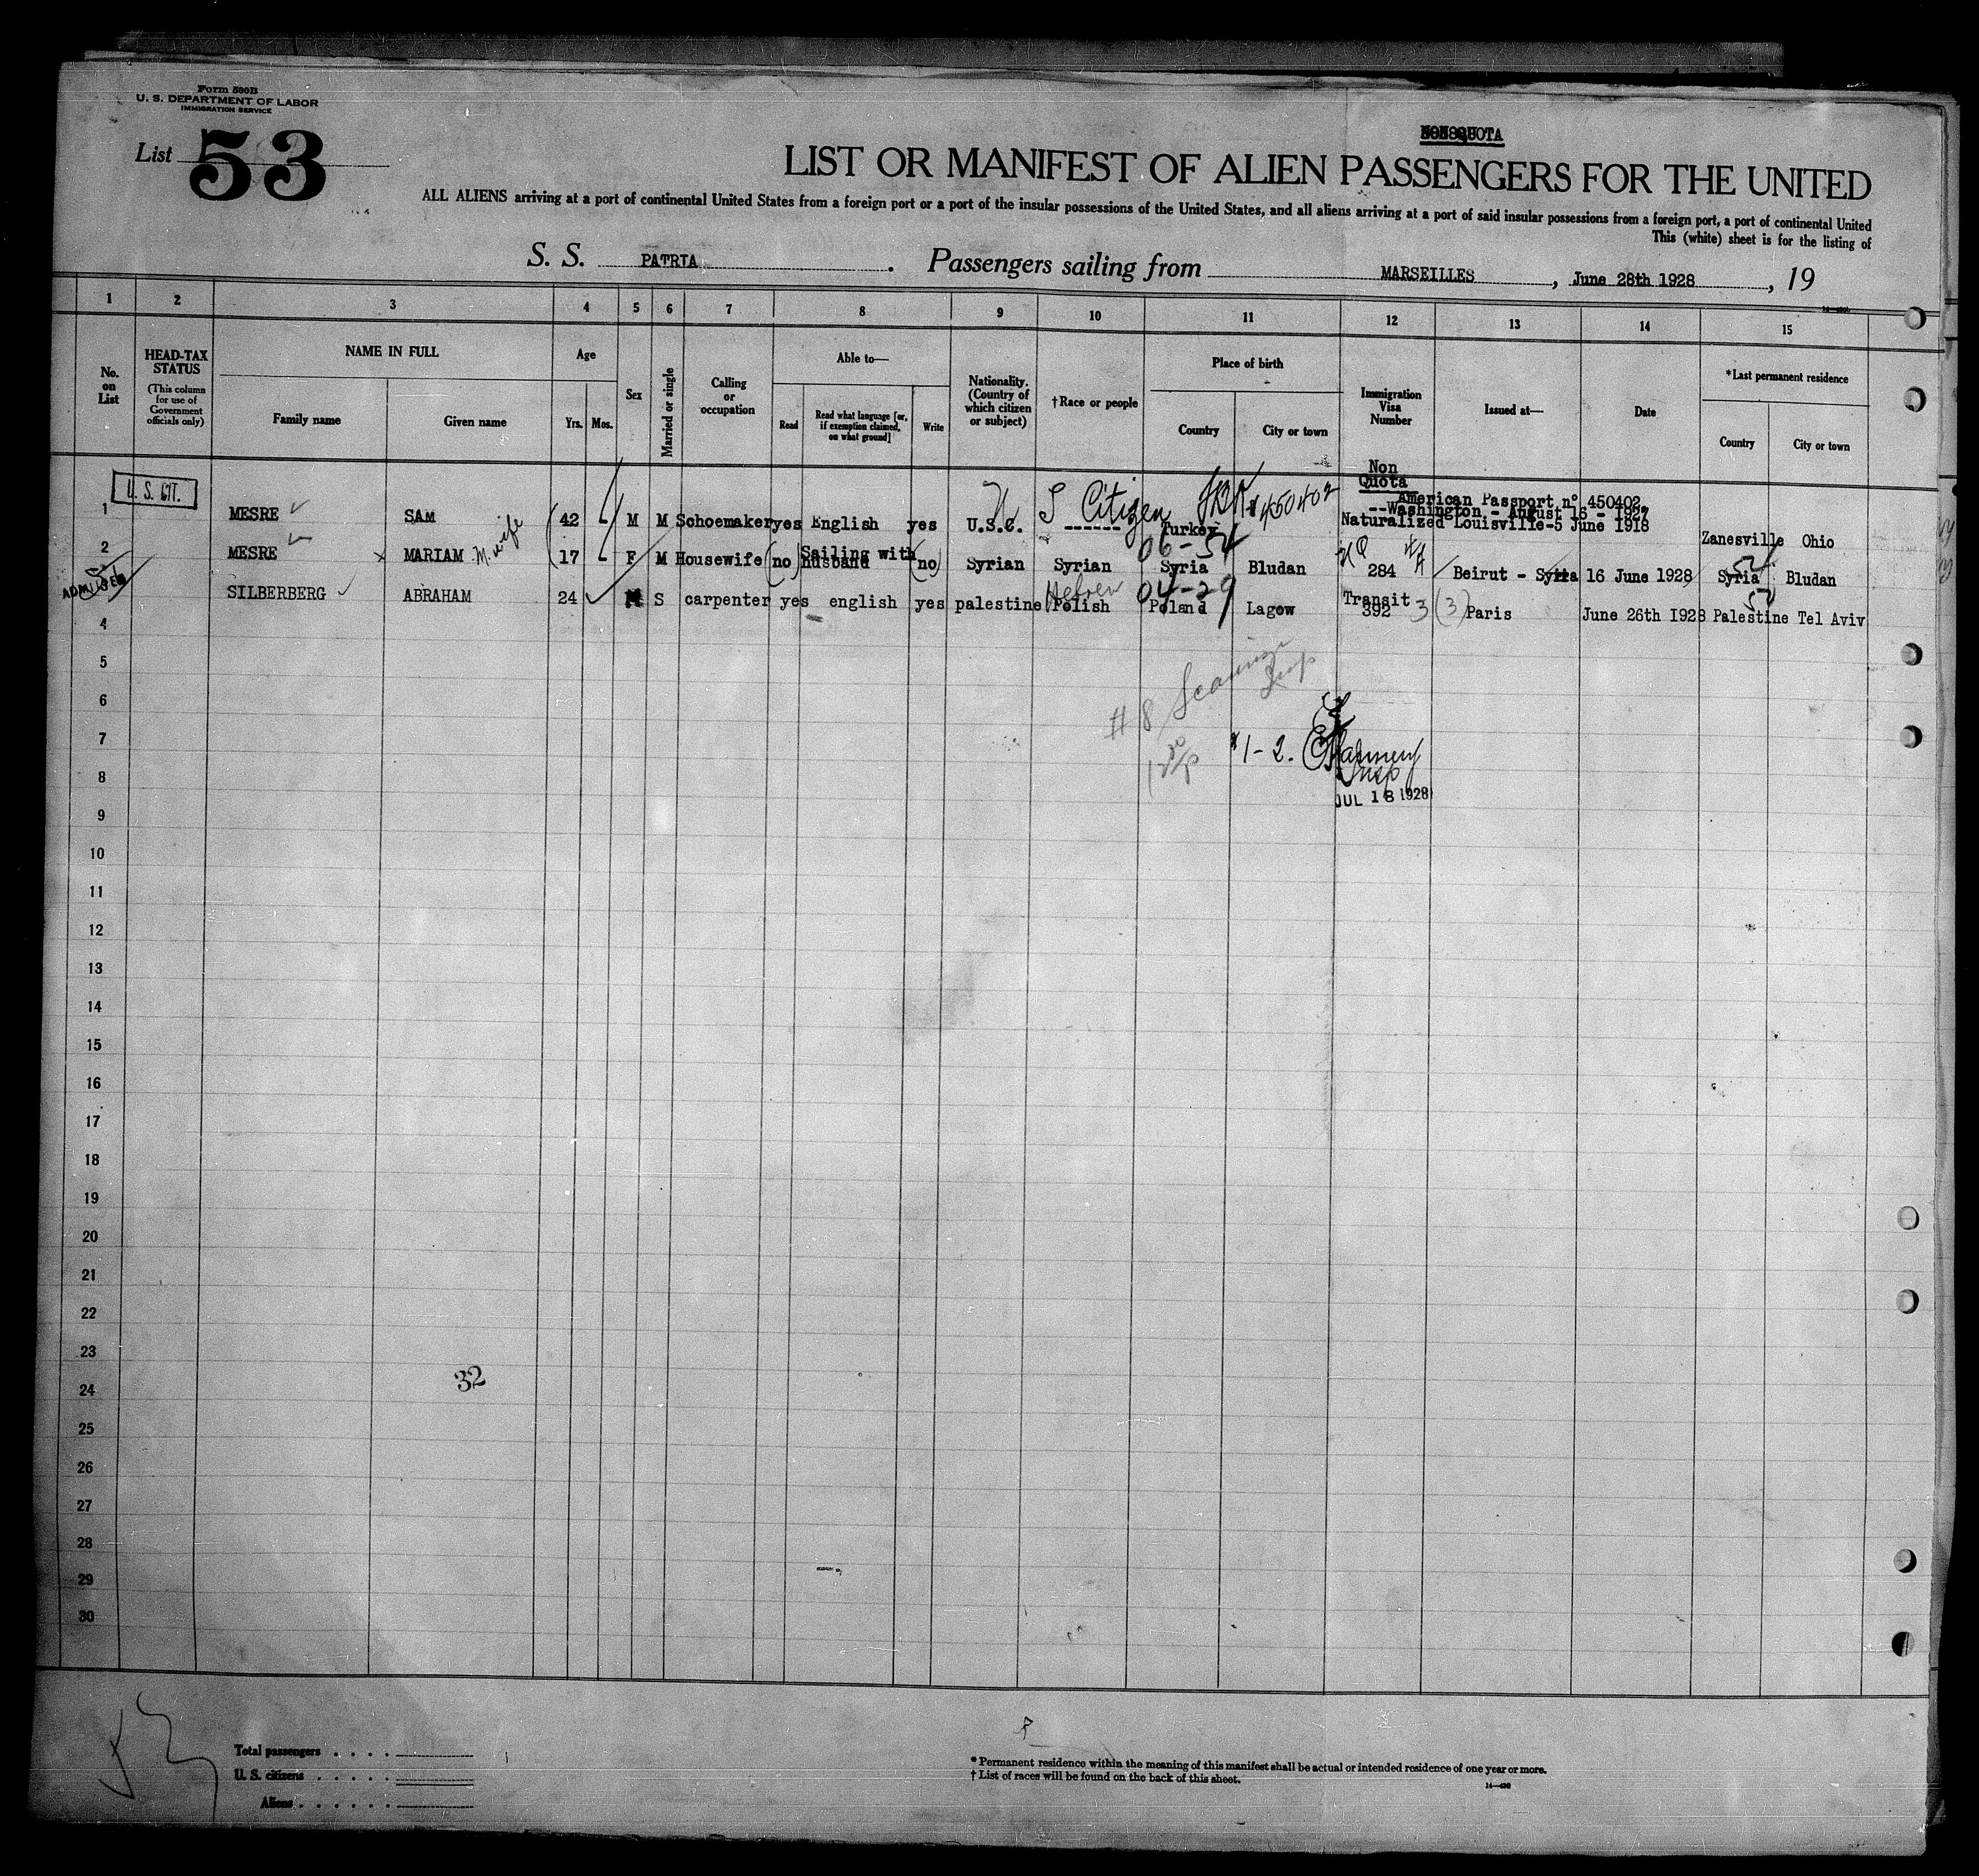 Form 500B
U. S. DEPARTMENT OF LABOR
IMMIGRATION SERVICE
List 53
LIST OR MANIFEST OF ALIEN PASSENGERS FOR THE UNITED
ALL ALIENS arriving at a port of continental United States from a foreign port or a port of the insular possessions of the United States, and all aliens arriving at a port of said insular possessions from a foreign port, a port of continental United
This (white) sheet is for the listing of
S. S. PATRIA . Passengers sailing from MARSEILLES , June 28th 1928 , 19
1 2 3 4 5 6 7 8 9 10 11 12 13 14 15
No. on List
HEAD-TAX STATUS
(This column for use of Government officials only)
NAME IN FULL
Family name Given name
Age
Yrs. Mos.
Sex
Married or single
Calling or occupation
Able to—
Read
Read what language [or, if exemption claimed, on what ground]
Write
Nationality. (Country of which citizen or subject)
†Race or people
Place of birth
Country City or town
Immigration Visa Number
Issued at—
Date
*Last permanent residence
Country City or town
Non
Quota
U. S. CIT.
1 MESRE SAM 42 M M Schoemaker yes English yes U.S.C. ------ Turkey
U S Citizen #450402
American Passport n° 450402
--Washington - August 16 - 1927
Naturalized Louisville-5 June 1918
Zanesville Ohio
06-54
2 MESRE MARIAM wife 17 F M Housewife (no) Sailing with husband (no) Syrian Syrian Syria Bludan 284 Beirut - Syria 16 June 1928 Syria Bludan
ADMITTED
SILBERBERG ABRAHAM 24 M S carpenter yes english yes palestine Hebrew Polish Poland Lagow Transit 392 3 (3) Paris June 26th 1928 Palestine Tel Aviv
04-29
4
5
6
7
8
9
10
11
12
13
14
15
16
17
18
19
20
21
22
23
24
25
26
27
28
29
30
# 8
Insp
1-2.
Insp
JUL 18 1928
32
53
Total passengers . . . .
U. S. citizens . . . . .
Aliens . . . . . .
* Permanent residence within the meaning of this manifest shall be actual or intended residence of one year or more.
† List of races will be found on the back of this sheet.